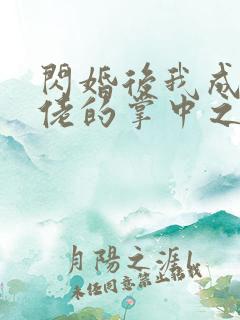 閃婚後我成
佬的掌中之
月陽之涯
未經同意禁止轉載